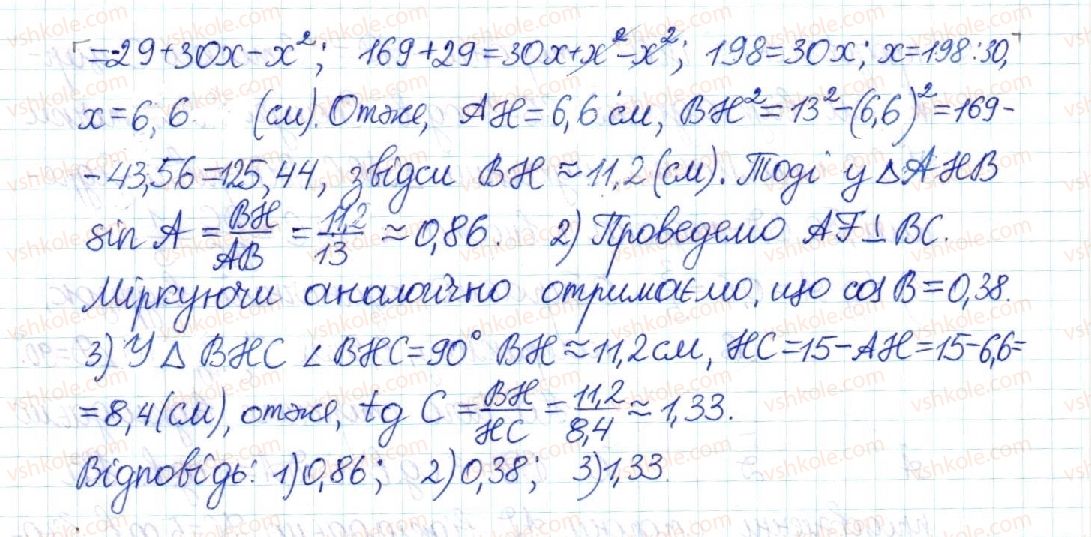 =-29+30x-x²; 169+29=30x+x²-x²; 198=30x; x=198:30,
x=6,6 (см). Отже, AH=6,6 см, BH²=13²-(6,6)²=169-
-43,56=125,44, звідси BH≈11,2(см). Тоді у △AHB
sin A = BH/AB = 11,2/13 ≈0,86. 2) Проведемо AF⊥BC.
Міркуючи аналогічно отримаємо, що cos B=0,38.
3) У △ BHC ∠BHC=90° BH≈11,2см, HC=15-AH=15-6,6=
=8,4(см), отже, tg C = BH/HC = 11,2/8,4 ≈ 1,33.
Відповідь: 1)0,86; 2)0,38; 3)1,33.